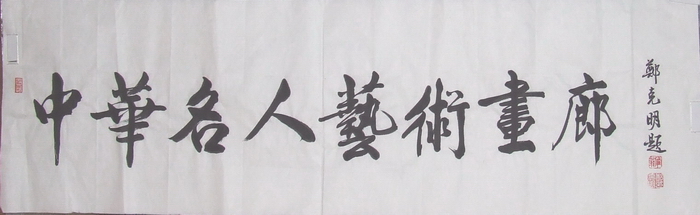 中華名人藝術畫廊
鄭克明題